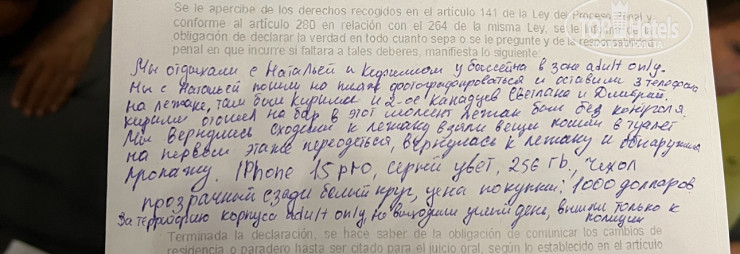 Se le apercibe de los derechos recogidos en el artículo 141 de la Ley de Proceso Penal y
conforme al artículo 280 en relación con el 264 de la misma Ley, se le
obligación de declarar la verdad en todo cuanto sepa o se le pregunte y de la responsabilidad
penal en que incurre si faltara a tales deberes, manifiesta lo siguiente:
TopHotels
Мы отдыхали с Натальей и Кириллом у бассейна в зоне adult only.
Мы с Натальей пошли на пляж фотографироваться и оставили 3 телефона
на лежаке, там были Кирилл и 2-ое канадцев Светлана и Дмитрий.
Кирилл отошел на бар в этот момент лежак был без контроля.
Мы вернулись сходили к лежаку взяли вещи пошли в туалет
на первом этаже переодеться, вернулась к лежаку и обнаружила
пропажу. IPhone 15 pro, серый цвет, 256 гб, чехол
прозрачный сзади белый круг, цена покупки: 1000 долларов
За территорию корпуса adult only не выходили целый день, вышли только к
полиции
Terminada la declaración, se hace saber de la obligación de comunicar los cambios de
residencia o paradero hasta ser citado para el juicio oral, según lo establecido en el artículo